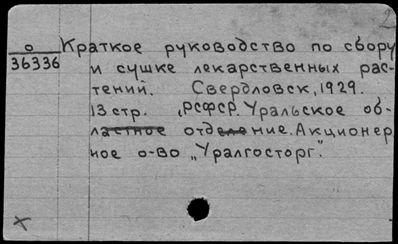 2
о Краткое руководство по сбору
36336 и сушке лекарственных рас-
тений. Свердловск, 1929.
13 стр. „РСФСР. Уральское об-
ластное отделение. Акционер
ное о-во „Уралгосторг".
х